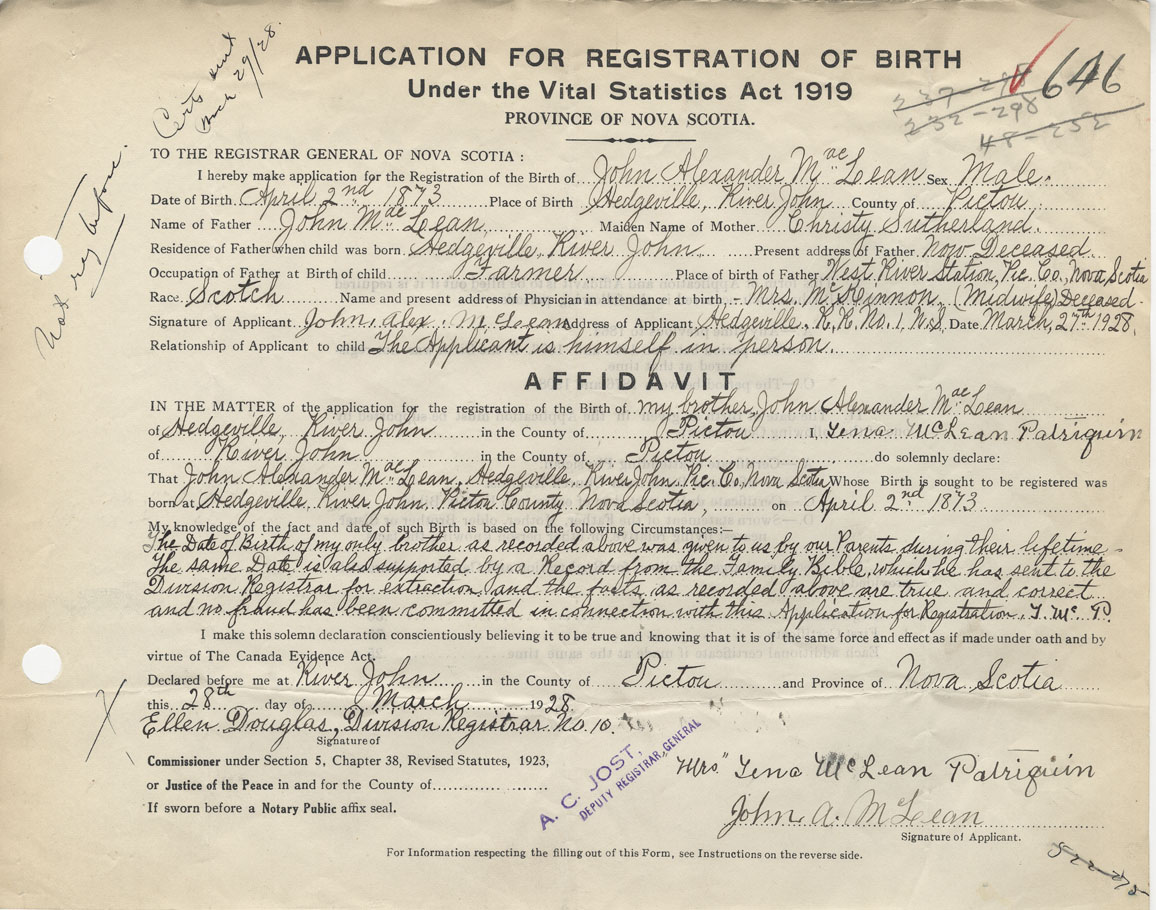 Certs sent
Mar 29/28.
Not reg before.
APPLICATION FOR REGISTRATION OF BIRTH
Under the Vital Statistics Act 1919
PROVINCE OF NOVA SCOTIA.
646
237-298
232-298
48-252
TO THE REGISTRAR GENERAL OF NOVA SCOTIA:
I hereby make application for the Registration of the Birth of John Alexander MacLean Sex Male.
Date of Birth April 2nd 1873 Place of Birth Hedgeville, River John County of Pictou
Name of Father John MacLean, Maiden Name of Mother Christy Sutherland.
Residence of Father when child was born Hedgeville, River John Present address of Father Now Deceased
Occupation of Father at Birth of child Farmer Place of birth of Father West River Station, Pic. Co., Nova Scotia
Race Scotch Name and present address of Physician in attendance at birth - Mrs. McKinnon, (Midwife) Deceased.
Signature of Applicant John. Alex. McLean Address of Applicant Hedgeville, R.R. No. 1 N.S. Date March, 27th 1928.
Relationship of Applicant to child The Applicant is himself in person.
AFFIDAVIT
IN THE MATTER of the application for the registration of the Birth of my brother, John Alexander MacLean
of Hedgeville, River John in the County of Pictou I, Tena McLean Patriquin
of River John in the County of Pictou do solemnly declare:
That John Alexander MacLean, Hedgeville, River John, Pic. Co., Nova Scotia Whose Birth is sought to be registered was
born at Hedgeville, River John, Pictou County Nova Scotia, on April 2nd 1873
My knowledge of the fact and date of such Birth is based on the following Circumstances:—
The Date of Birth of my only brother as recorded above was given to us by our Parents during their lifetime.
The same Date is also supported by a Record from the Family Bible, which he has sent to the
Division Registrar for extraction, and the facts as recorded above are true and correct
and no fraud has been committed in connection with this Application for Registration, T. Mc. P.
I make this solemn declaration conscientiously believing it to be true and knowing that it is of the same force and effect as if made under oath and by
virtue of The Canada Evidence Act.
Declared before me at River John in the County of Pictou and Province of Nova Scotia
this 28th day of March 1928.
Ellen Douglas, Division Registrar No. 10.
Signature of
Commissioner under Section 5, Chapter 38, Revised Statutes, 1923,
or Justice of the Peace in and for the County of
If sworn before a Notary Public affix seal.
A. C. JOST,
DEPUTY REGISTRAR GENERAL
"Mrs" Tena McLean Patriquin
John. A. McLean
Signature of Applicant.
For Information respecting the filling out of this Form, see Instructions on the reverse side.